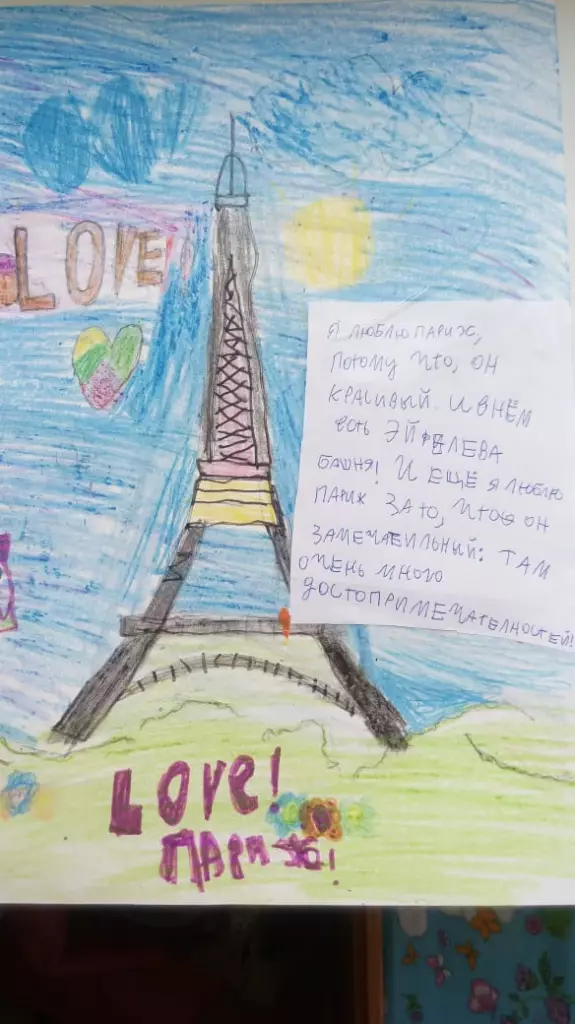 LOVE!
Я ЛЮБЛЮ ПАРИЖ,
ПОТОМУ ЧТО, ОН
КРАСИВЫЙ. И В НЁМ
ЕСТЬ ЭЙФЕЛЕВА
БАШНЯ! И ЕЩЁ Я ЛЮБЛЮ
ПАРИЖ ЗА ТО, ЧТО ОН
ЗАМЕЧАЕИЛЬНЫЙ: ТАМ
ОЧЕНЬ МНОГО
ДОСТОПРИМЕЧАТЕЛНОСТЕЙ!
LOVE!
ПАРИЖ!